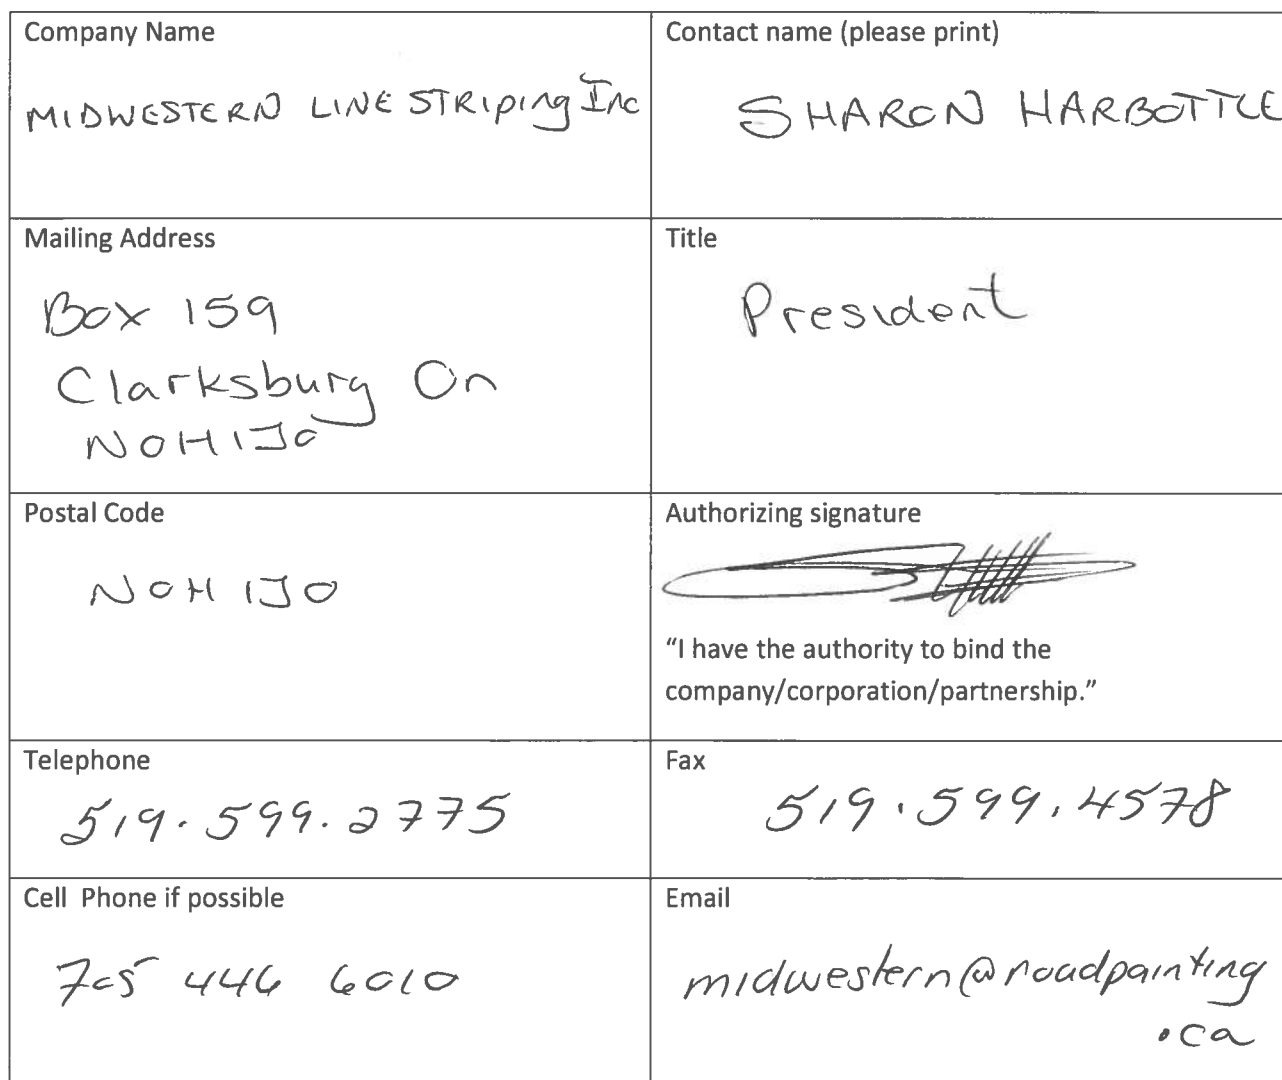 Company Name
MIDWESTERN LINE STRIPing Inc
Contact name (please print)
SHARON HARBOTTLE
Mailing Address
Box 159
Clarksburg On
N0H1J0
Title
President
Postal Code
N0H 1J0
Authorizing signature
“I have the authority to bind the
company/corporation/partnership.”
Telephone
519.599.2775
Fax
519.599.4578
Cell Phone if possible
705 446 6010
Email
midwestern@roadpainting
.ca